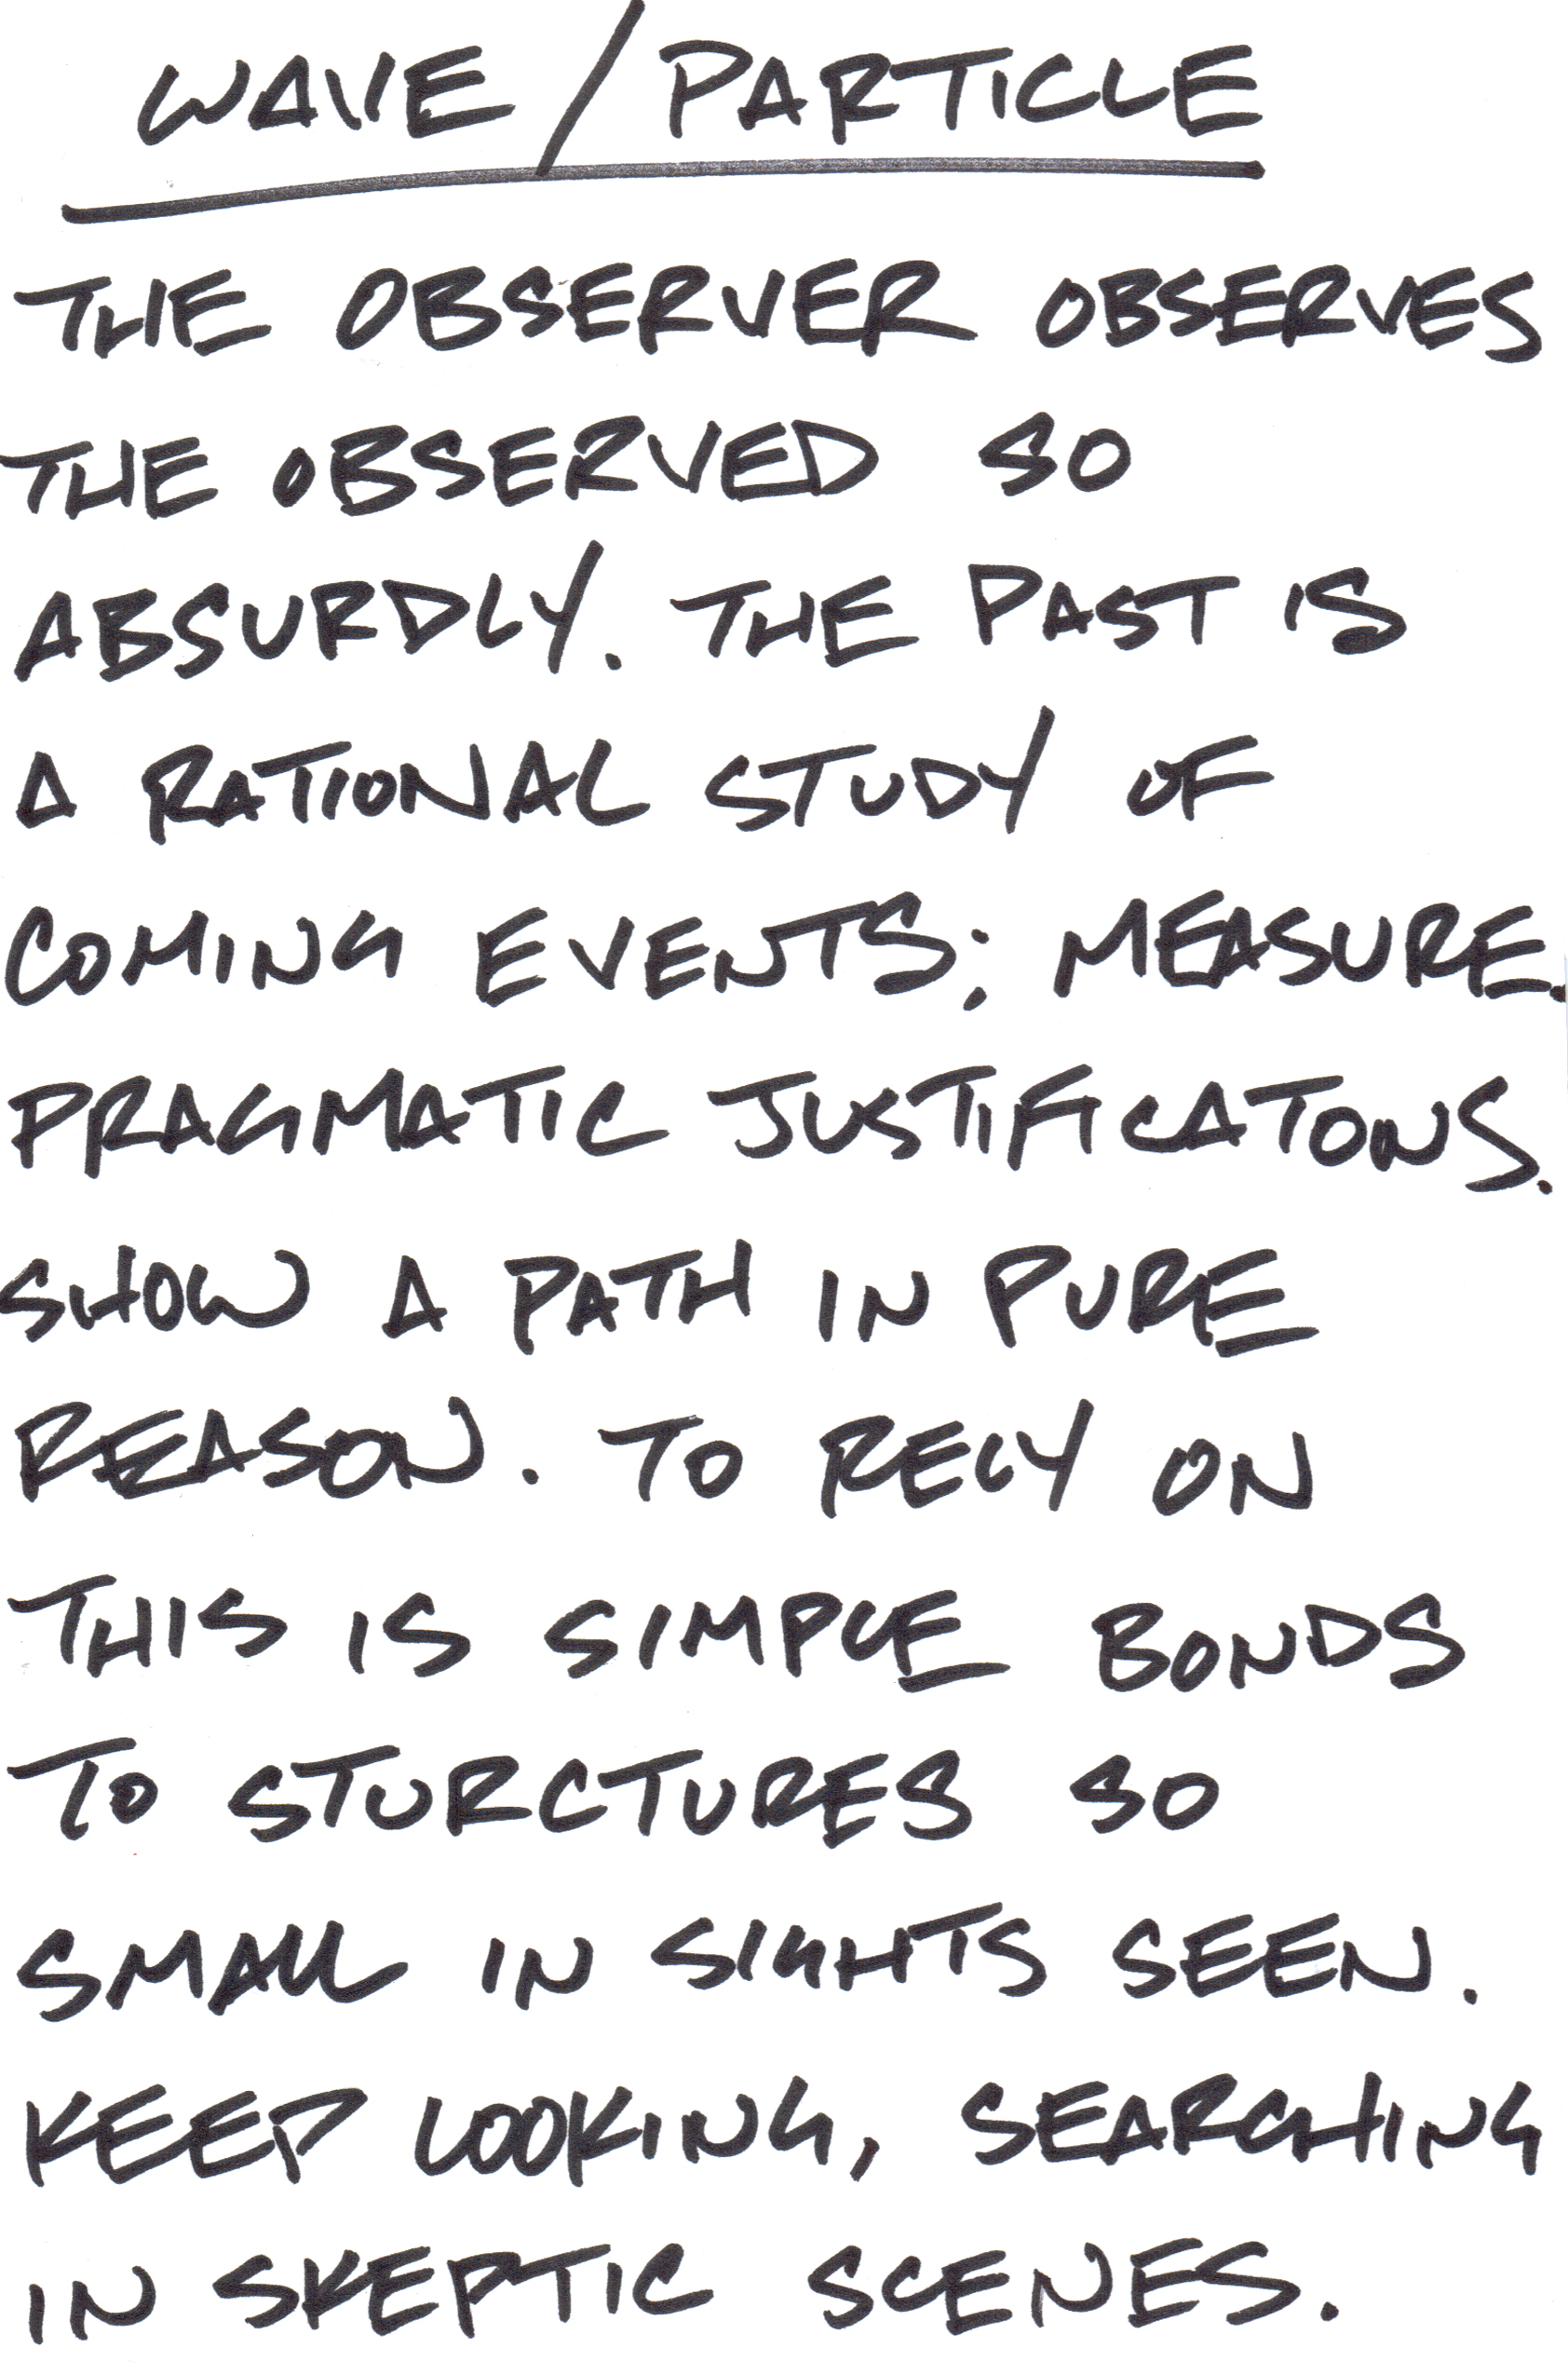 WAVE / PARTICLE
THE OBSERVER OBSERVES
THE OBSERVED SO
ABSURDLY. THE PAST IS
A RATIONAL STUDY OF
COMING EVENTS; MEASURE.
PRAGMATIC JUSTIFICATONS.
SHOW A PATH IN PURE
REASON. TO RELY ON
THIS IS SIMPLE BONDS
TO STURCTURES SO
SMALL IN SIGHTS SEEN.
KEEP LOOKING, SEARCHING
IN SKEPTIC SCENES.